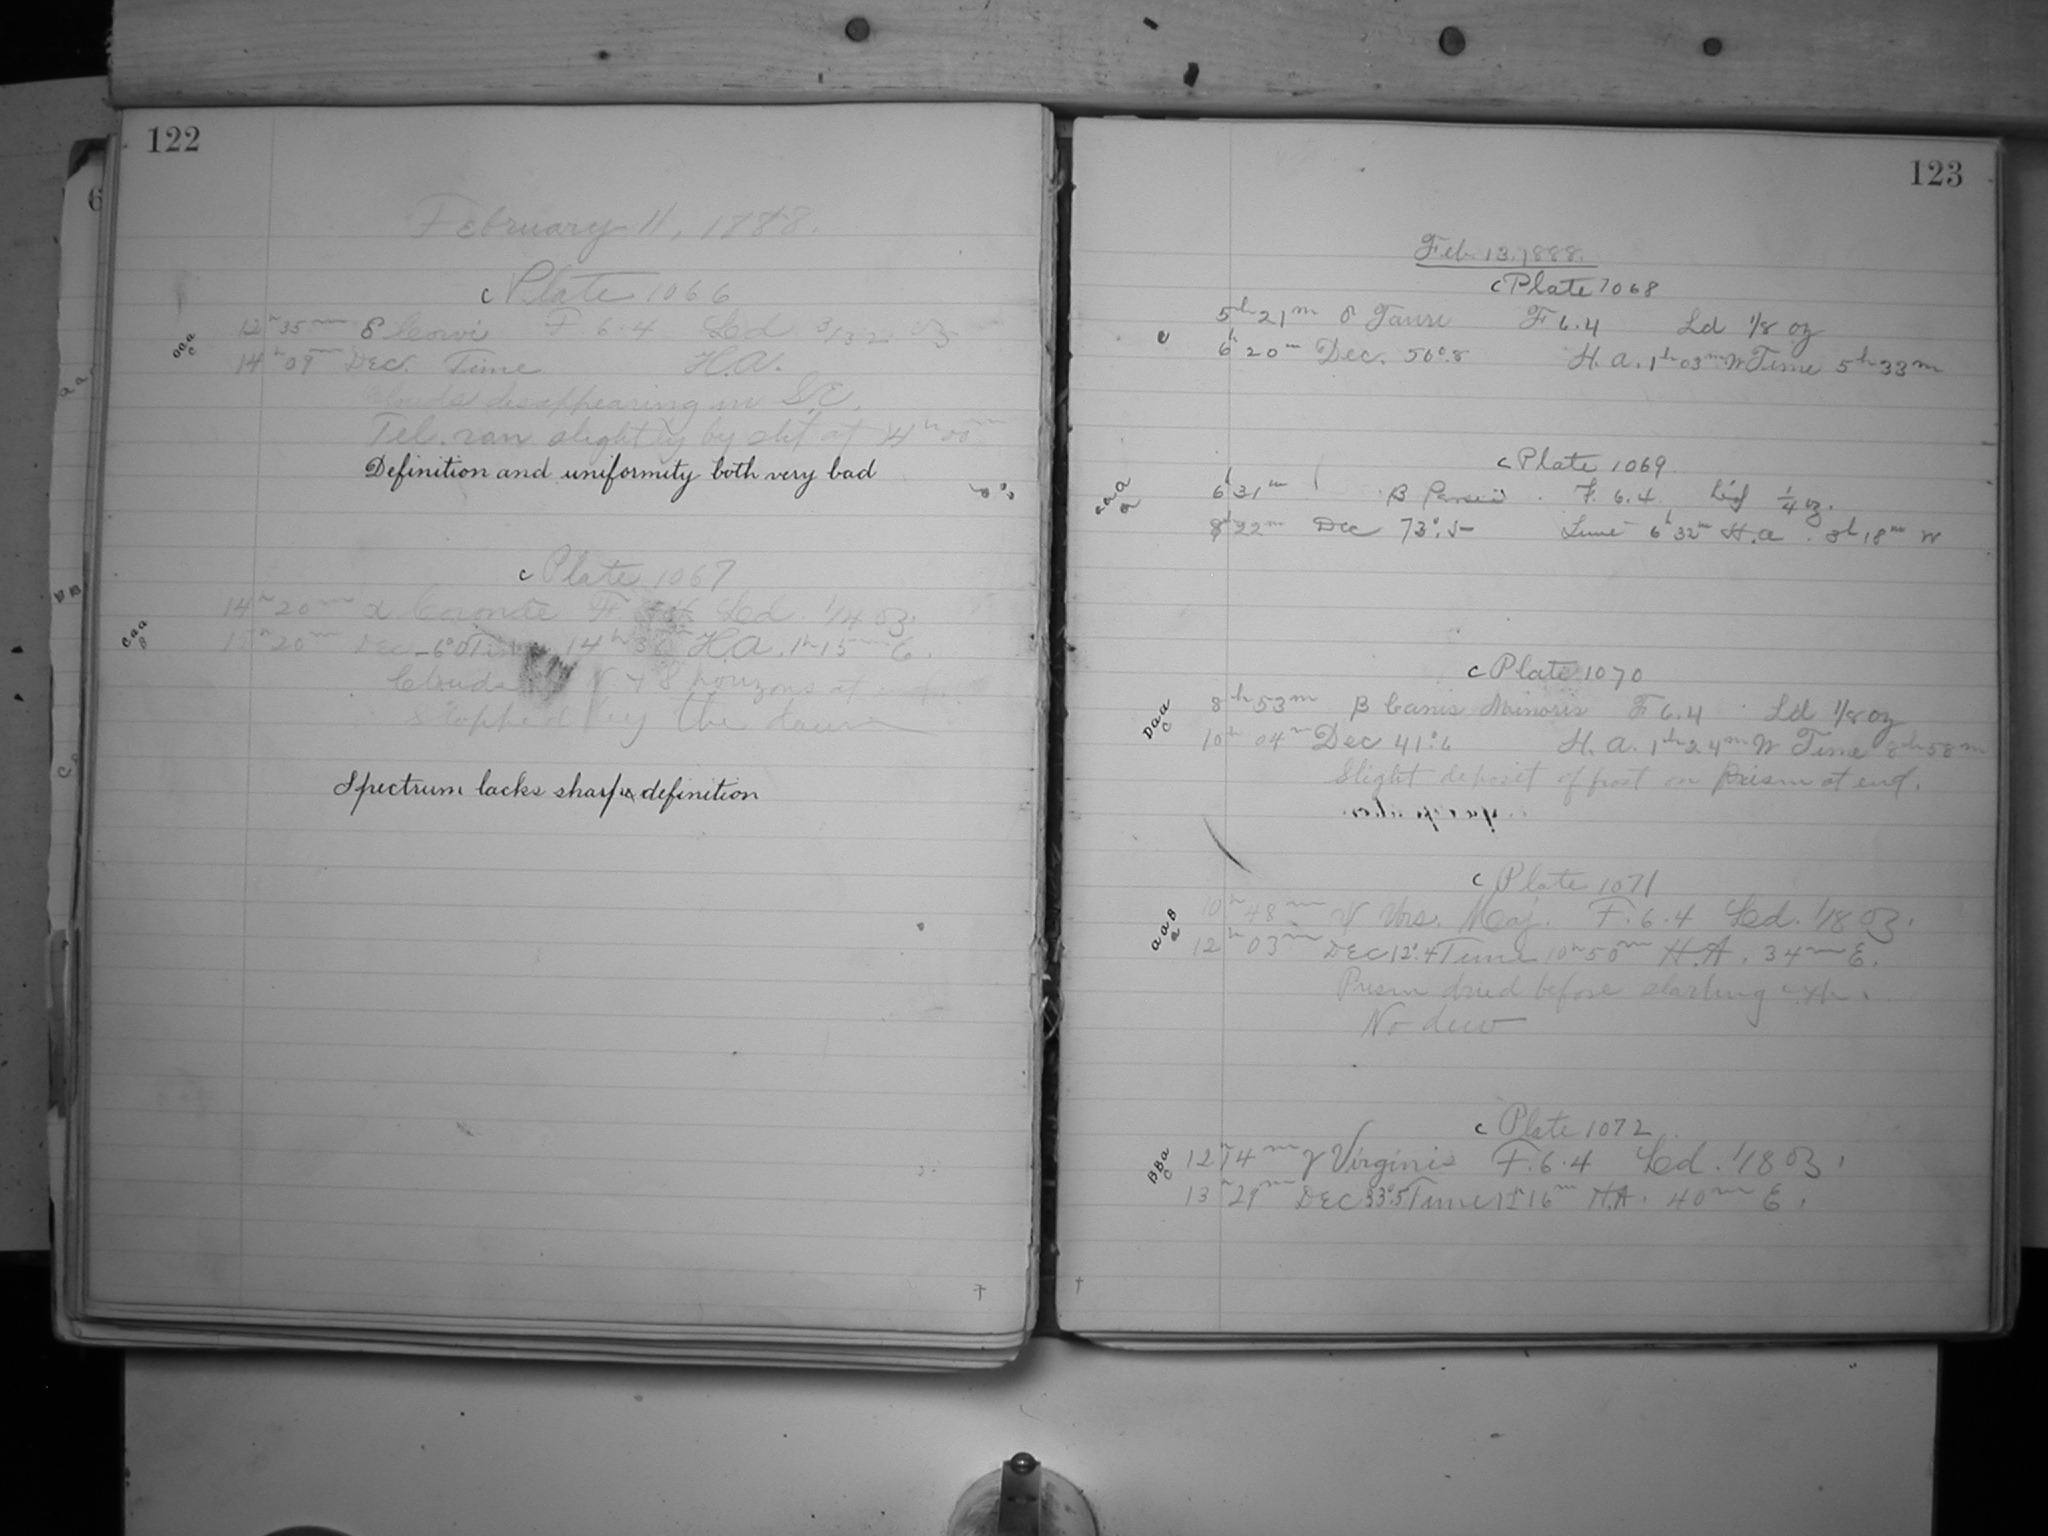 122
February 11, 1888.
c Plate 1066
aaa
c
12h 35m δ Corvi F 6.4 Ld 3/32 oz
14h 09m Dec. Time H.A.
Clouds disappearing in S.E.
Tel. ran slightly by at 14h 00m
Definition and uniformity both very bad
c Plate 1067
caa
B
14h 20m α Coronae F Ld. 1/4 oz.
20m Dec -6°.0 14h 36 H.A. 1h 15m E.
Clouds N. + S horizons at
Stopped by the dawn
Spectrum lacks sharp definition
123
Feb. 13, 1888.
c Plate 1068
c
5h 21m Tauri F 6.4 Ld 1/8 oz
6h 20m Dec. 50°.8 H. A. 1h 03m W Time 5h 33m
c Plate 1069
6h 31m β Persei F. 6.4. 1/4 oz.
8h 22m Dec 73°.5 Time 6h 32m H.a. 3h 18m W
c Plate 1070
Daa
c
8h 53m β Canis Minoris F 6.4 Ld 1/8 oz
10h 04m Dec 41°.6 H. A. 1h 24m W Time 8h 58m
Slight deposit of frost on Prism at end.
c Plate 1071
aaB
a
10h 48m ψ Urs. Maj. F. 6.4 Ld. 1/8 oz.
12h 03m Dec 12°.4 Time 10h 50m H.A. 34m E.
Prism dried before starting exp.
No dew
c Plate 1072
BBa
c
12h 14m γ Virginis F. 6.4 Ld. 1/8 oz.
13h 29m Dec 33°.5 Time 12h 16m H.A. 40m E.